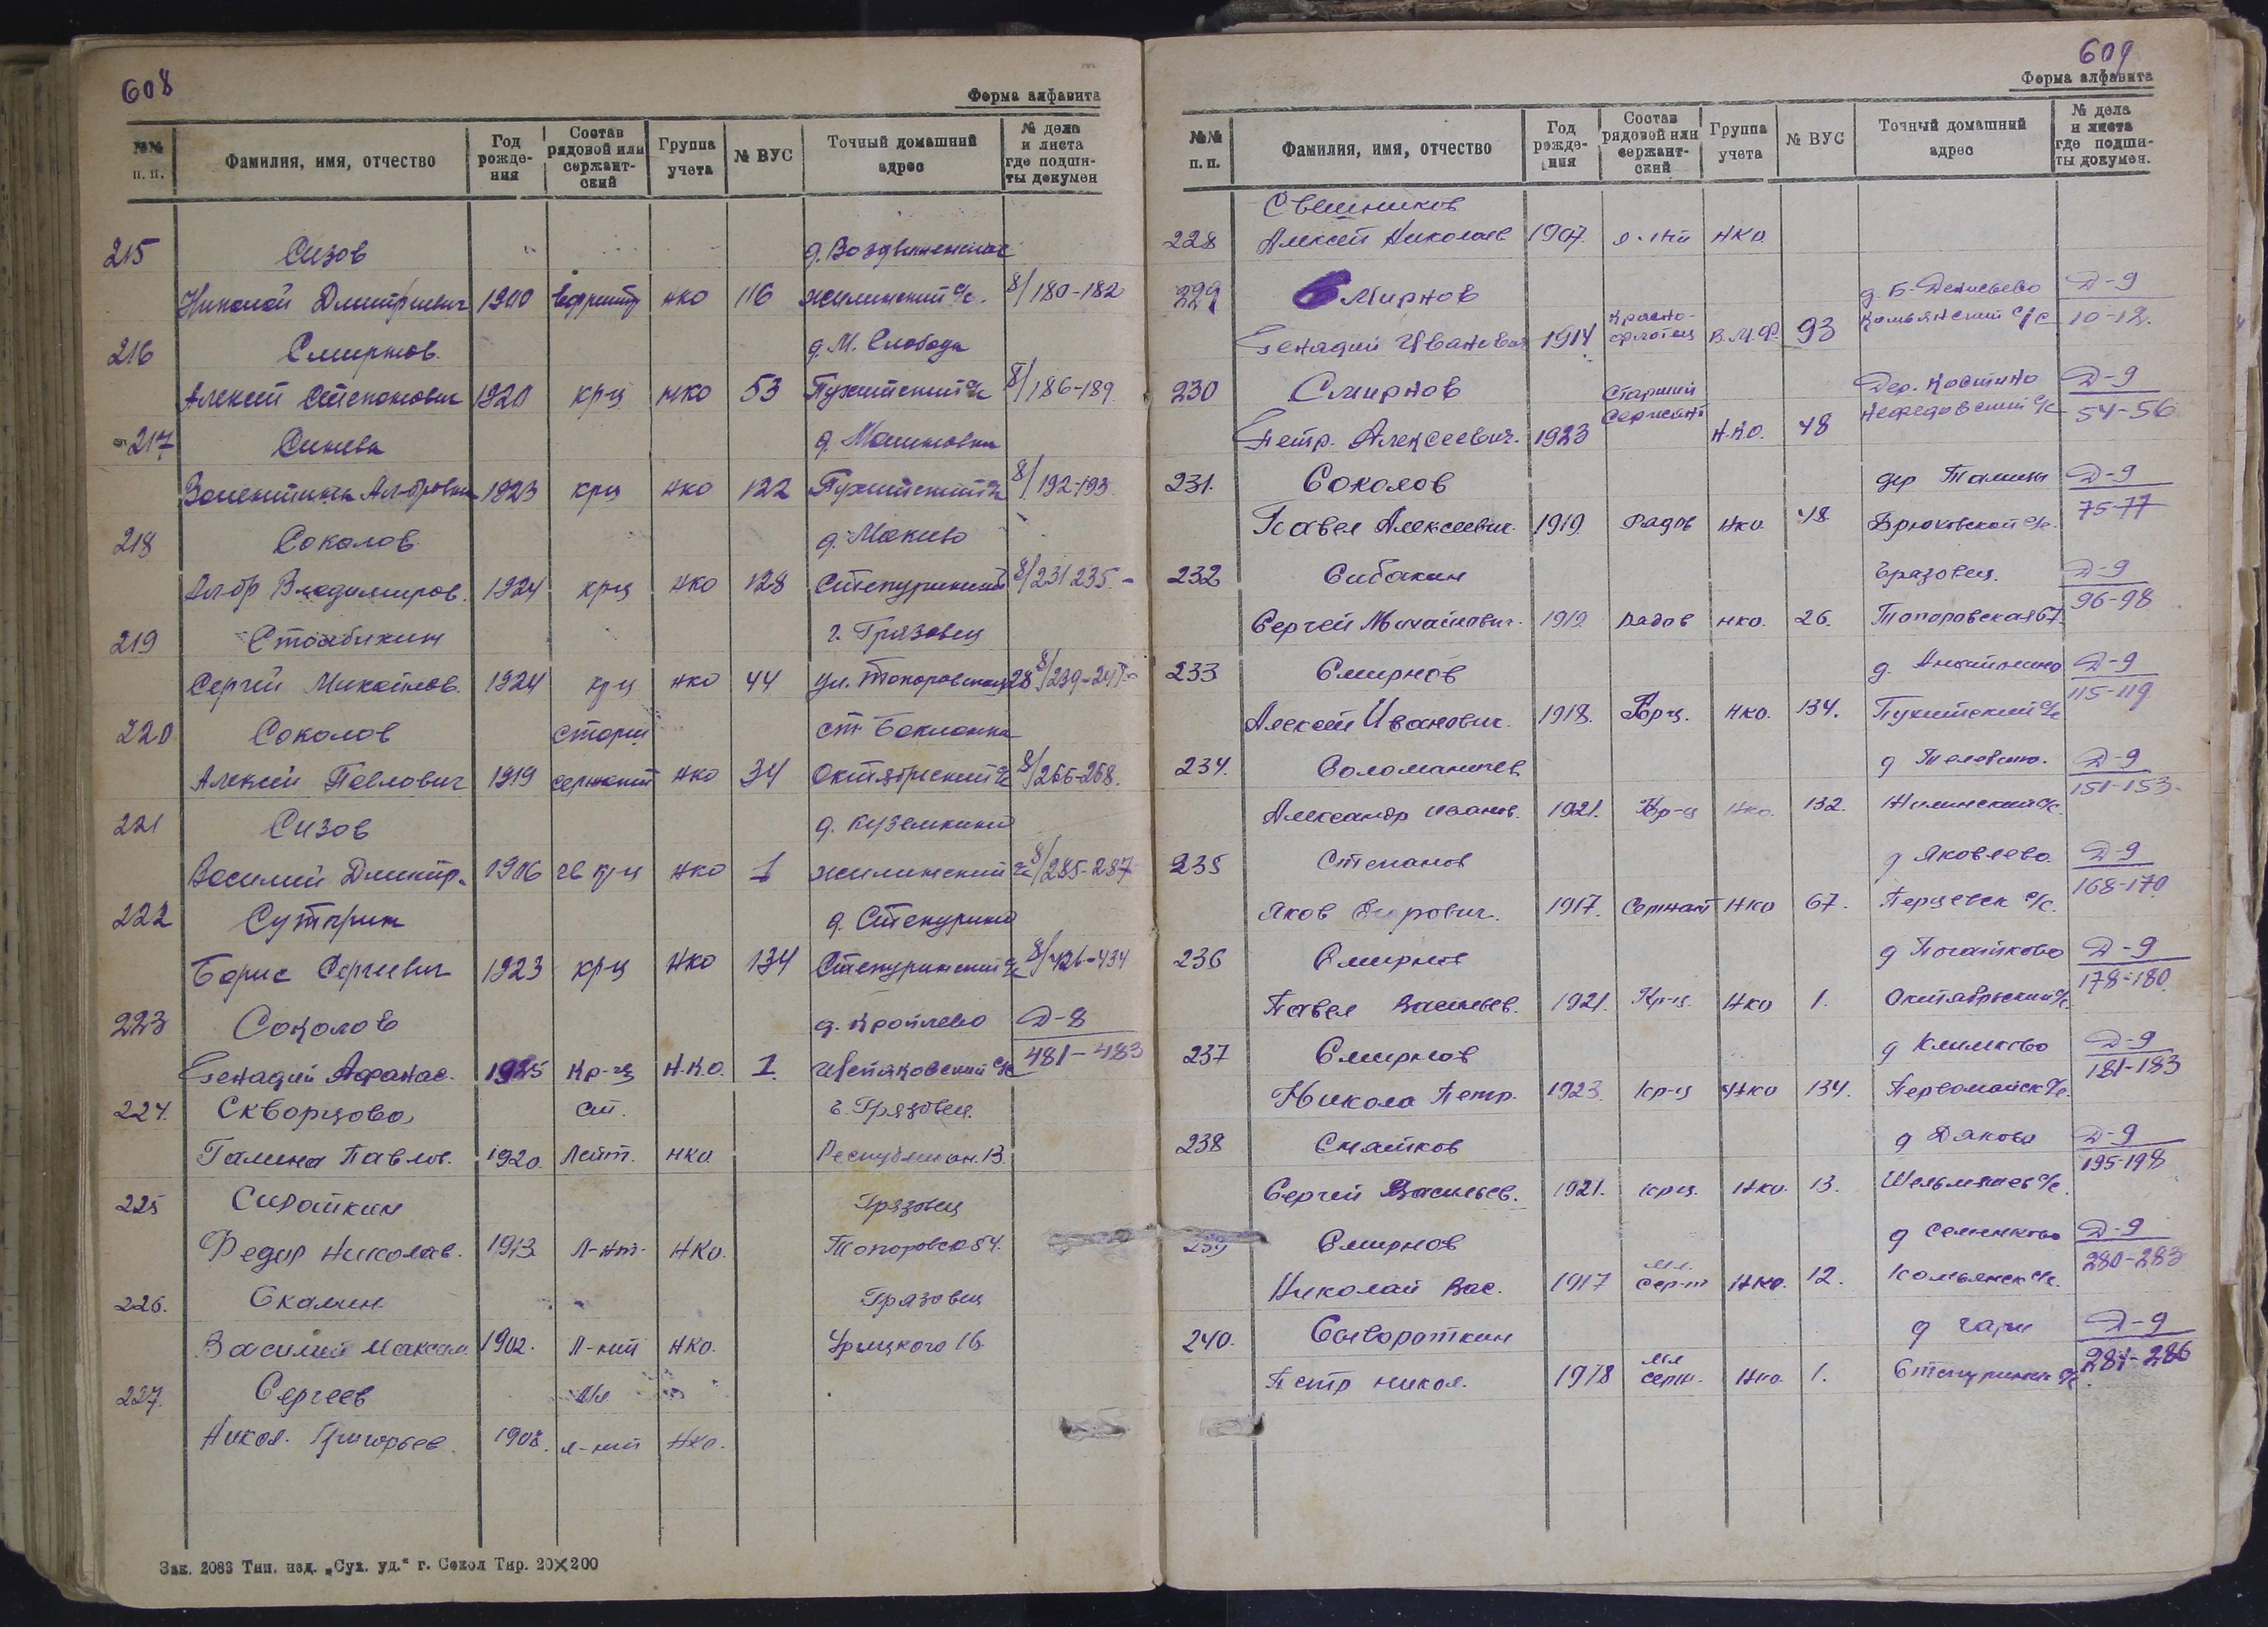 608
Форма алфавита
№№ п. п. Фамилия, имя, отчество Год рожде-ния Состав рядовой или сержант-ский Группа учета № ВУС Точный домашний адрес № дела и листа где подши-ты докумен
215 Сизов д. Воздвиженская
Николай Дмитриевич 1900 ефрейтр НКО 116 Жилинский с/с. 8/180-182
216 Смирнов. д. М. Слобода
Алексей Степанович 1920 кр-ц НКО 53 Пухитский с/с 8/186-189
217 Синева д. Малиновка
Валентина Ал-дровна 1923 кр-ц НКО 122 Пухитский с/с 8/192-193
218 Соколов д. Макиево
Ал-др Владимиров. 1924 кр-ц НКО 128 Степуринский 8/231 235
219 г. Грязовец
Сергей Михайлов. 1924 кр-ц НКО 44 ул. Топоровская 28 8/239-241
220 Соколов старш ст. Бакланка
Алексей Павлович 1919 сержант НКО 34 Октябрьский с/с 8/266-268.
221 Сизов д. Куземкино
Василий Дмитр. 1906 гв кр-ц НКО 1 Жилинский с/с 8/285-287
222 Сутырин д. Степурино
Борис Сергеевич 1923 кр-ц НКО 134 Степуринский с/с 8/426-434
223 Соколов д. Кроплево Д-8
Генадий Афанас. 1925 Кр-ец Н.К.О. 1. с/с 481-483
224. Скворцова ст. г. Грязовец.
Галина Павлов. 1920. Лейт. НКО. Республикан. 13.
225 Сироткин Грязовец
Федор Николаев. 1913 Л-нт. НКО. Топоровск 54.
226. Скалин Грязовец
Василий Максим. 1902. Л-нт НКО. Урицкого 16.
227. Сергеев Мл
Никол. Григорьев. 1908. л-нт НКО.
Зак. 2083 Тип. изд. „Сух. уд.“ г. Сокол Тир. 20×200
609
Форма алфавита
№№ п. п. Фамилия, имя, отчество Год рожде-ния Состав рядовой или сержант-ский Группа учета № ВУС Точный домашний адрес № дела и листа где подши-ты докумен.
Свешников
228 Алексей Николаев 1907. л-нт НКО.
229 Смирнов д. Б-Денисьево Д-9
Генадий Иванович 1914 Красно-флотец В.М.Ф. 93 Комьянский с/с 10-12.
230 Смирнов Старший Дер. Костино Д-9
Петр. Алексеевич. 1923 Сержант Н.К.О. 48 Нефедовский с/с 54-56
231. Соколов дер Талицы Д-9
Павел Алексеевич. 1919. Рядов НКО 48. Брюховской с/с. 75-77
232 Сибакин Грязовец. Д-9
Сергей Михайлович. 1919. Рядов НКО. 26. Топоровская 67. 96-98
233 Смирнов д. Д-9
Алексей Иванович. 1918. Кр-ц. НКО. 134. Пухитский с/с 115-119
234. Соломаничев д Д-9
Александр Иванов. 1921. Кр-ц НКО. 132. Жилинский с/с. 151-153.
235 Степанов д Яковлево. Д-9
Яков Егорович. 1917. Сержант НКО 67. Перцевск с/с. 168-170.
236 Смирнов д Почайково Д-9
Павел Васильев. 1921. Кр-ц. НКО 1. Октябрьский с/с. 178-180.
237 Смирнов д Климково Д-9
Никола Петр. 1923. кр-ц НКО 134. Первомайск с/с. 181-183
238 Смятков д Дяково Д-9
Сергей Васильев. 1921. кр-ц. НКО. 13. с/с. 195-198
239 Смирнов д Семенково Д-9
Николай Вас. 1917 Мл. Сер-т НКО. 12. Комьянск с/с. 280-283
240. Сывороткин д Гари Д-9
Петр Никол. 1918 Мл серж. НКО. 1. Степуринск с/с. 284-286